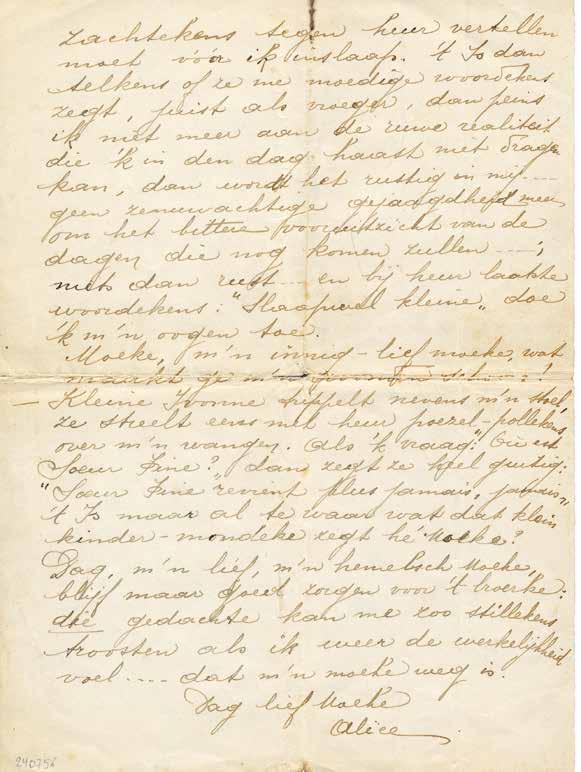 zachtekens tegen heur vertellen
moet vóór ik inslaap. 't Is dan
telkens of ze me moedige woordekens
zegt, juist als vroeger, dan peins
ik niet meer aan de ruwe realiteit
die 'k in den dag haast niet dragen
kan, dan wordt het rustig in mij....
geen zenuwachtige gejaagdheid meer
om het bittere vooruitzicht van de
dagen die nog komen zullen ....,
niets dan rust.... en bij heur laatste
woordekens: "Slaapwel kleine" doe
'k m'n oogen toe.
Moeke, m'n innig-lief moeke, wat
maakt ge m'n
- Kleine Ivonne trippelt nevens m'n stoel
ze streelt eens met heur poezel-pollekens
over m'n wangen. Als 'k vraag: "Où est
Sœur Fine?" dan zegt ze heel guitig:
"Sœur Fine revient plus jamais, jamais",
't Is maar al te waar wat dat klein
kinder-mondeke zegt hé Moeke?
Dag, m'n lief, m'n hemelsch Moeke,
blijf maar goed zorgen voor 't broerke:
dié gedachte kan me zoo stillekens
troosten als ik weer de werkelijkheid
voel.... dat m'n moeke weg is.
Dag lief Moeke
Alice
240756